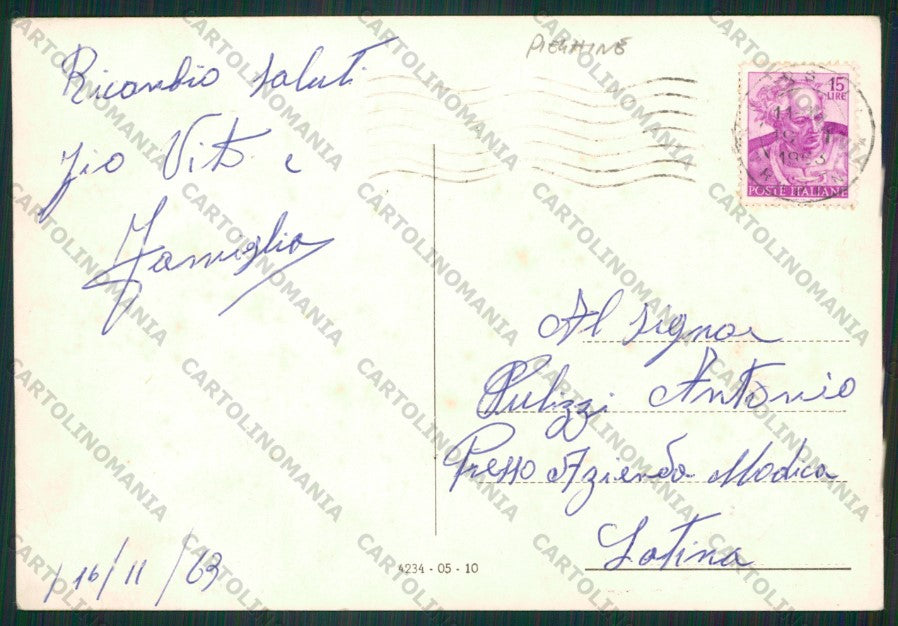 Ricambio saluti
Zio Vito e
Famiglia
16/11/63
4234 - 05 - 10
15
LIRE
1963
POSTE ITALIANE
Al Signor
Pulizzi Antonio
Presso Azienda Modica
Latina
CARTOLINOMANIA